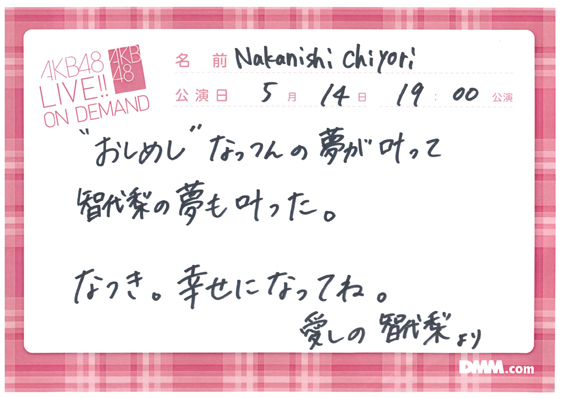 AKB48
LIVE!!
ON DEMAND
AKB
48
名前 Nakanishi Chiyori
公演日 5月 14日 19:00 公演
"おしめし" なっつんの夢が叶って
智代梨の夢も叶った。
なつき。幸せになってね。
愛しの 智代梨より
DMM.com